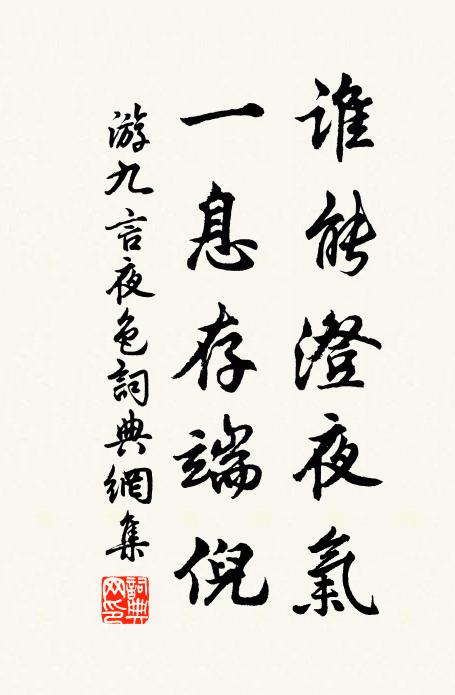 誰能澄夜氣
一息存端倪
游九言夜色詞典網集
詞典網印